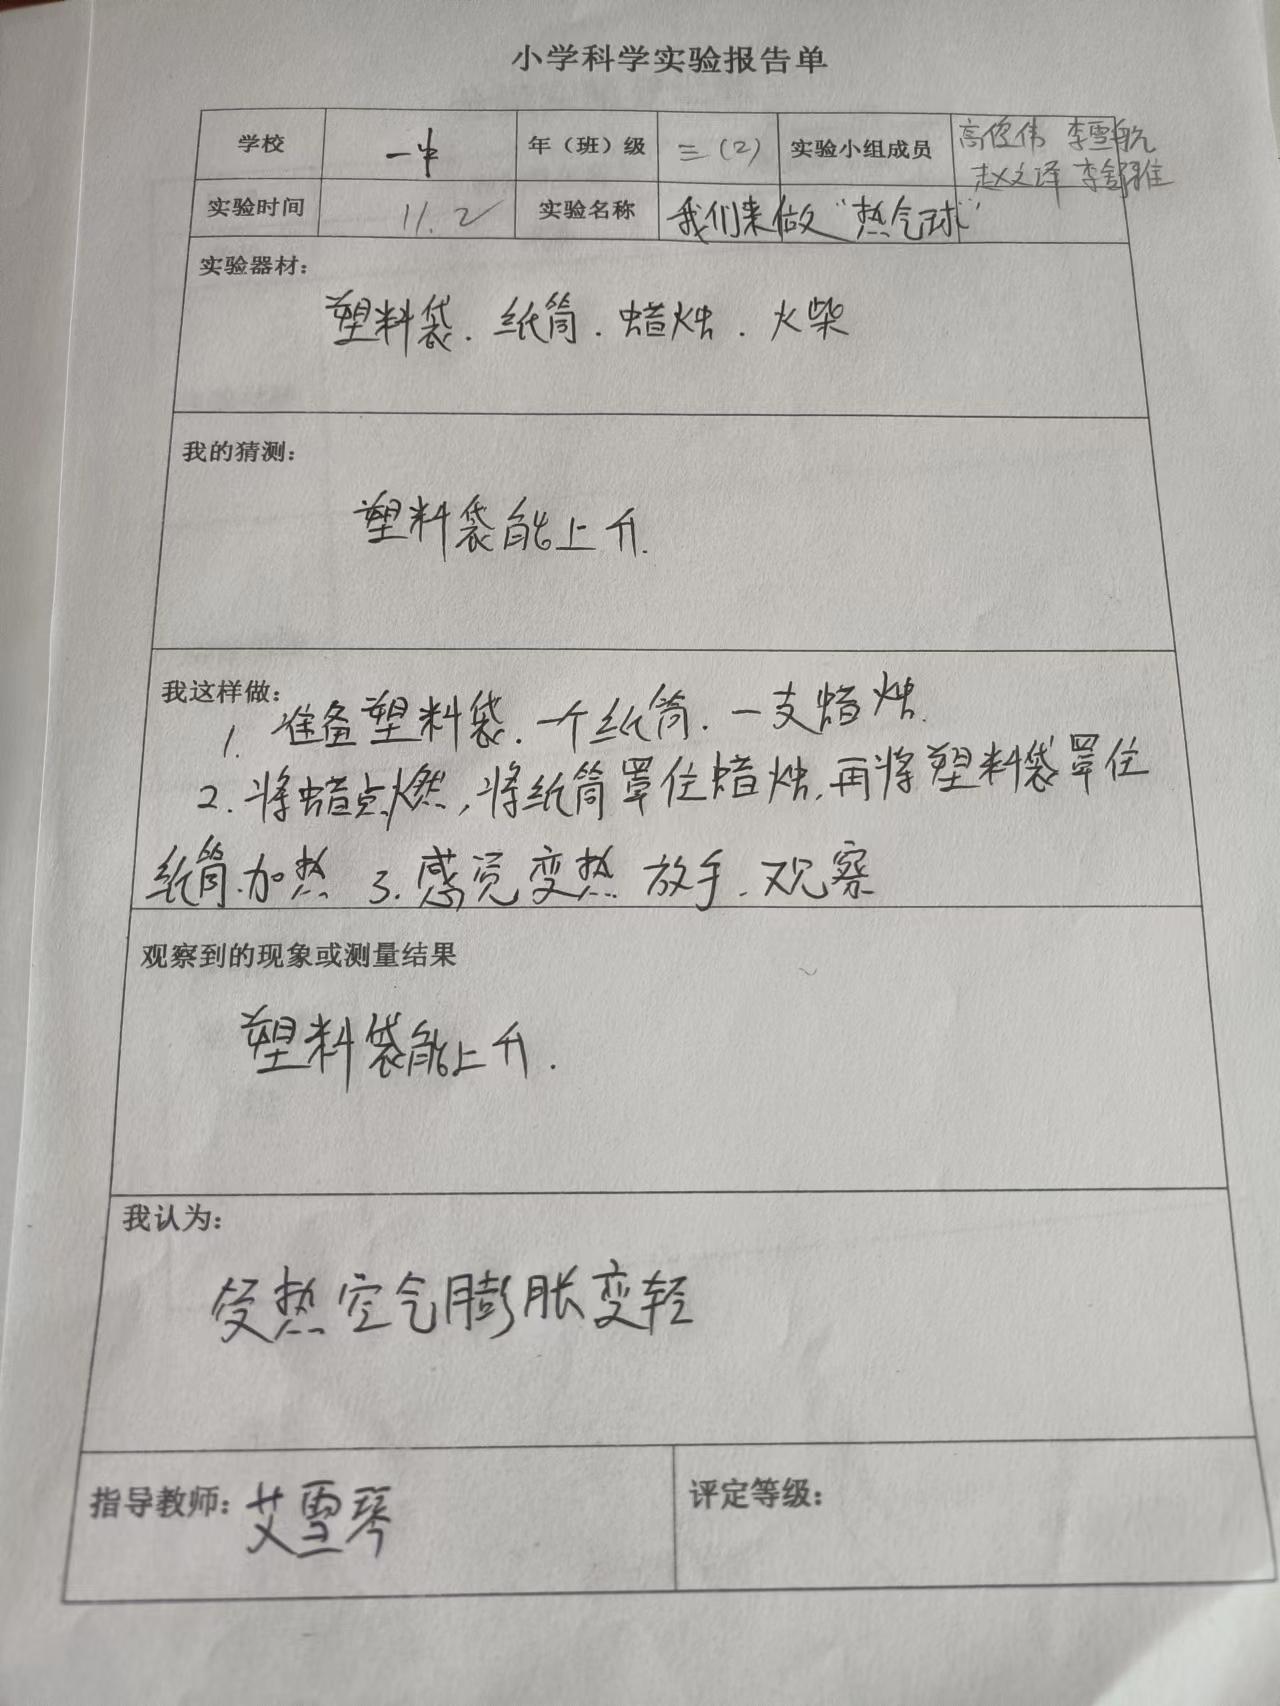 小学科学实验报告单
学校 一中 年（班）级 三（2） 实验小组成员 高俊伟 李雪航
赵文泽 李舒雅
实验时间 11.2 实验名称 我们来做“热气球”
实验器材：
塑料袋．纸筒．蜡烛．火柴
我的猜测：
塑料袋能上升．
我这样做：
1. 准备塑料袋．一个纸筒．一支蜡烛．
2. 将蜡点燃，将纸筒罩住蜡烛，再将塑料袋罩住
纸筒．加热 3. 感觉变热 放手．观察
观察到的现象或测量结果
塑料袋能上升．
我认为：
受热空气膨胀变轻
指导教师：艾雪琴 评定等级：